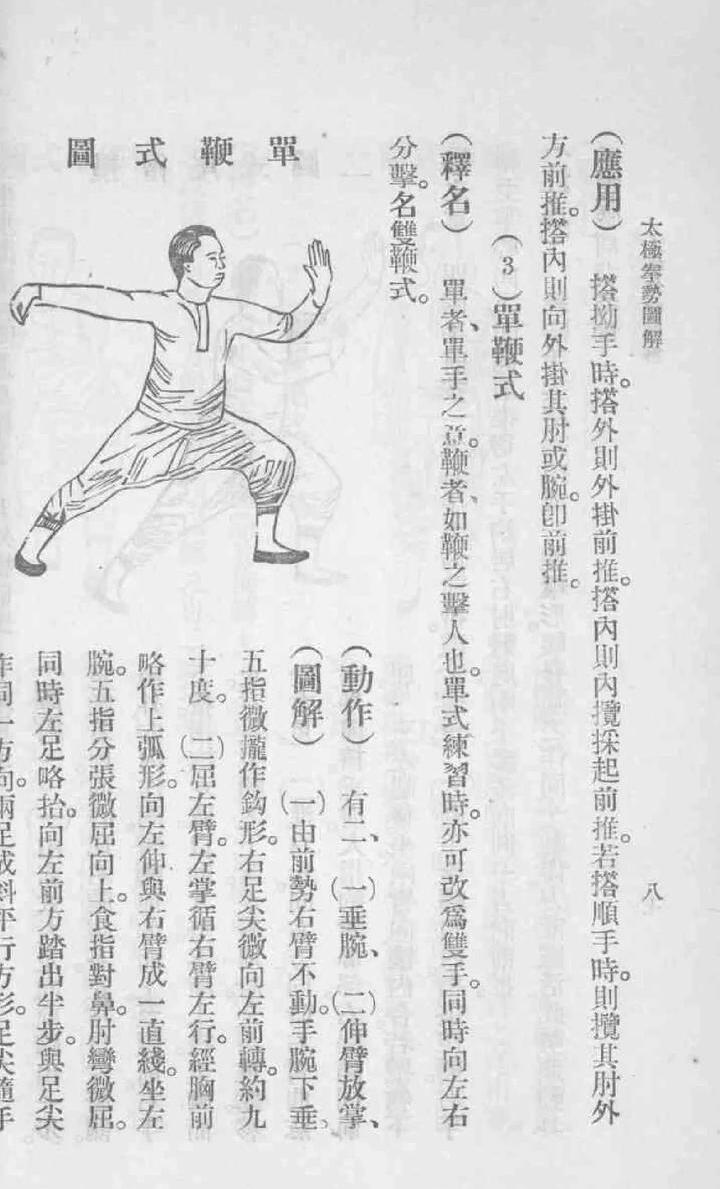 太極拳勢圖解
八
（應用）　搭拗手時。搭外則外掛前推。搭內則內攬採起前推。若搭順手時。則攬其肘外
方前推。搭內則向外掛其肘或腕。卽前推。
（3）單鞭式
（釋名）　單者、單手之意。鞭者、如鞭之擊人也。單式練習時。亦可改爲雙手。同時向左右
分擊。名雙鞭式。
單鞭式圖
（動作）　有二、（一）垂腕、（二）伸臂放掌、
（圖解）　（一）由前勢右臂不動。手腕下垂、
五指微攏作鈎形。右足尖微向左前轉。約九
十度。（二）屈左臂。左掌循右臂左行。經胸前
略作上弧形。向左伸與右臂成一直綫。坐左
腕。五指分張微屈向上。食指對鼻。肘彎微屈。
同時左足咯抬。向左前方踏出半步。與足尖
作同一方向。兩足成斜平行方形。足尖隨手